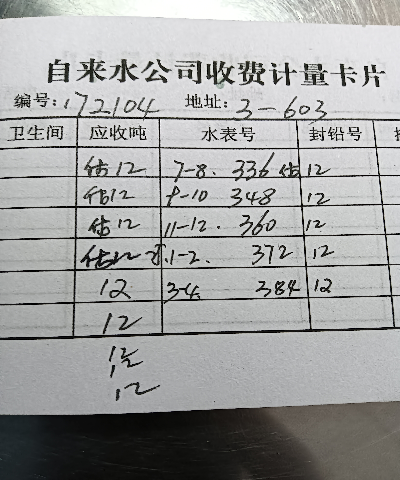 自来水公司收费计量卡片
编号:172104 地址:3-603
卫生间 应收吨 水表号 封铅号
估12 7-8. 336 估12
估12 9-10 348 12
估12 11-12. 360 12
估12 1-2. 372 12
12 3-4 384 12
12
12
12